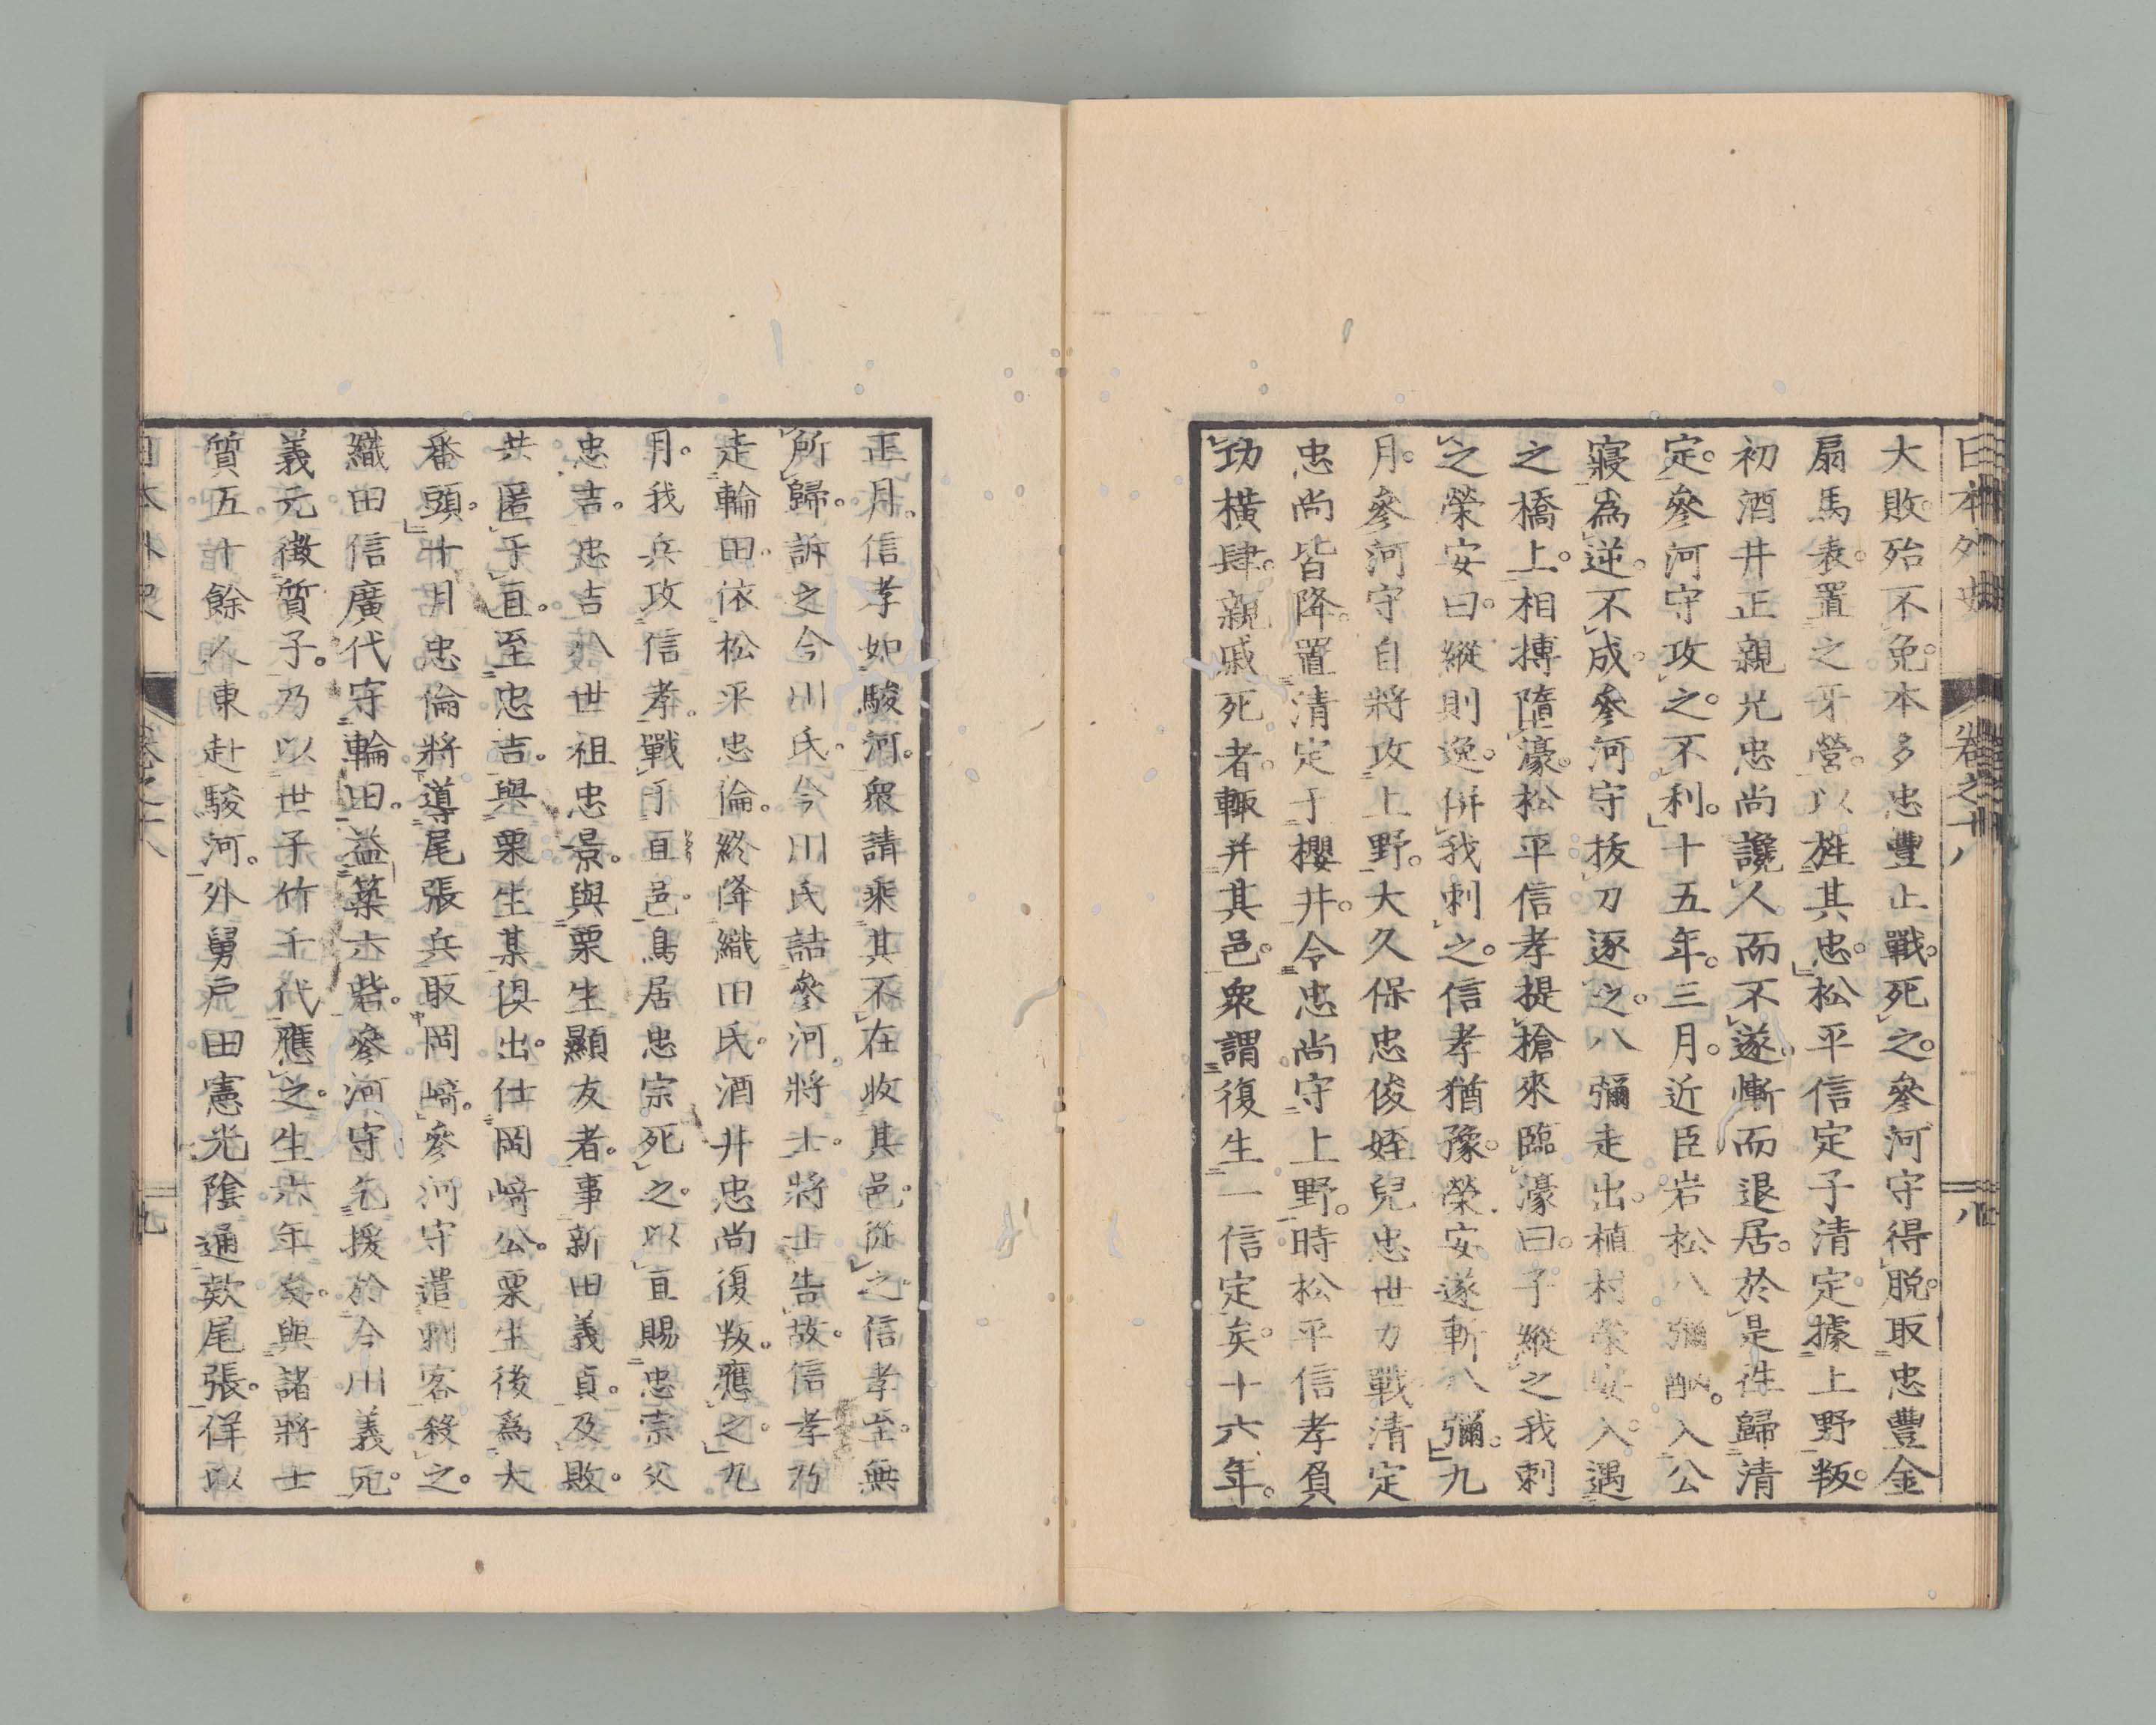 日本外史 卷之十八 八
大敗。殆不免。本多忠豐止戰死之。參河守得脱。取忠豐金
扇馬表。置之牙營。以旌其忠。松平信定子清定。據上野叛。
初酒井正親兄忠尚讒人而不遂。慚而退居。於是往歸清
定。參河守攻之。不利。十五年。三月。近臣岩松八彌醉。入公
寢爲逆。不成。參河守拔刀逐之。八彌走出。植村榮安入。遇
之橋上。相摶墮濠。松平信孝提槍來臨濠曰。子縱之我刺
之。榮安曰。縱則逸。併我刺之。信孝猶豫。榮安遂斬八彌。九
月。參河守自將攻上野。大久保忠俊姪兒忠世力戰。清定
忠尚皆降。置清定于櫻井。令忠尚守上野。時松平信孝負
功橫肆。親戚死者。輙并其邑。衆謂復生一信定矣。十六年。
正月。信孝如駿河。衆請乘其不在收其邑。從之。信孝至。無
所歸。訴之今川氏。今川氏詰參河將士。將士告故。信孝乃
走輪田。依松平忠倫。終降織田氏。酒井忠尚復叛。應之。九
月。我兵攻信孝。戰于亘邑。鳥居忠宗死之。以亘賜忠宗父
忠吉。忠吉八世祖忠景。與栗生顯友者。事新田義貞。及敗。
共匿于亘。至忠吉。與栗生某倶出。仕岡﨑公。栗生後爲大
番頭。十月忠倫將導尾張兵取岡﨑。參河守遣刺客殺之。
織田信廣代守輪田。益築六砦。參河守乞援於今川義元。
義元徵質子。乃以世子竹千代應之。生六年矣。與諸將士
質五十餘人東赴駿河。外舅戸田憲光陰通款尾張。佯以
日本外史 卷之十八 九